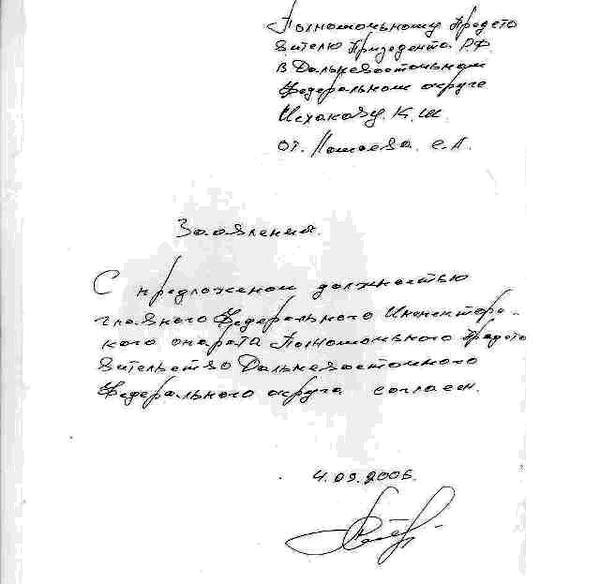 Полномочному Предста
вителю Президента РФ
в Дальневосточном
Федеральном округе
Исхакову К.Ш.
от. С.П.
Заовления.
С предложеном должностью
главного Федерального
кого опарата Полномочьного Предста
вительство Дальневосточного
Федерального округа согласен.
4.09.2006.